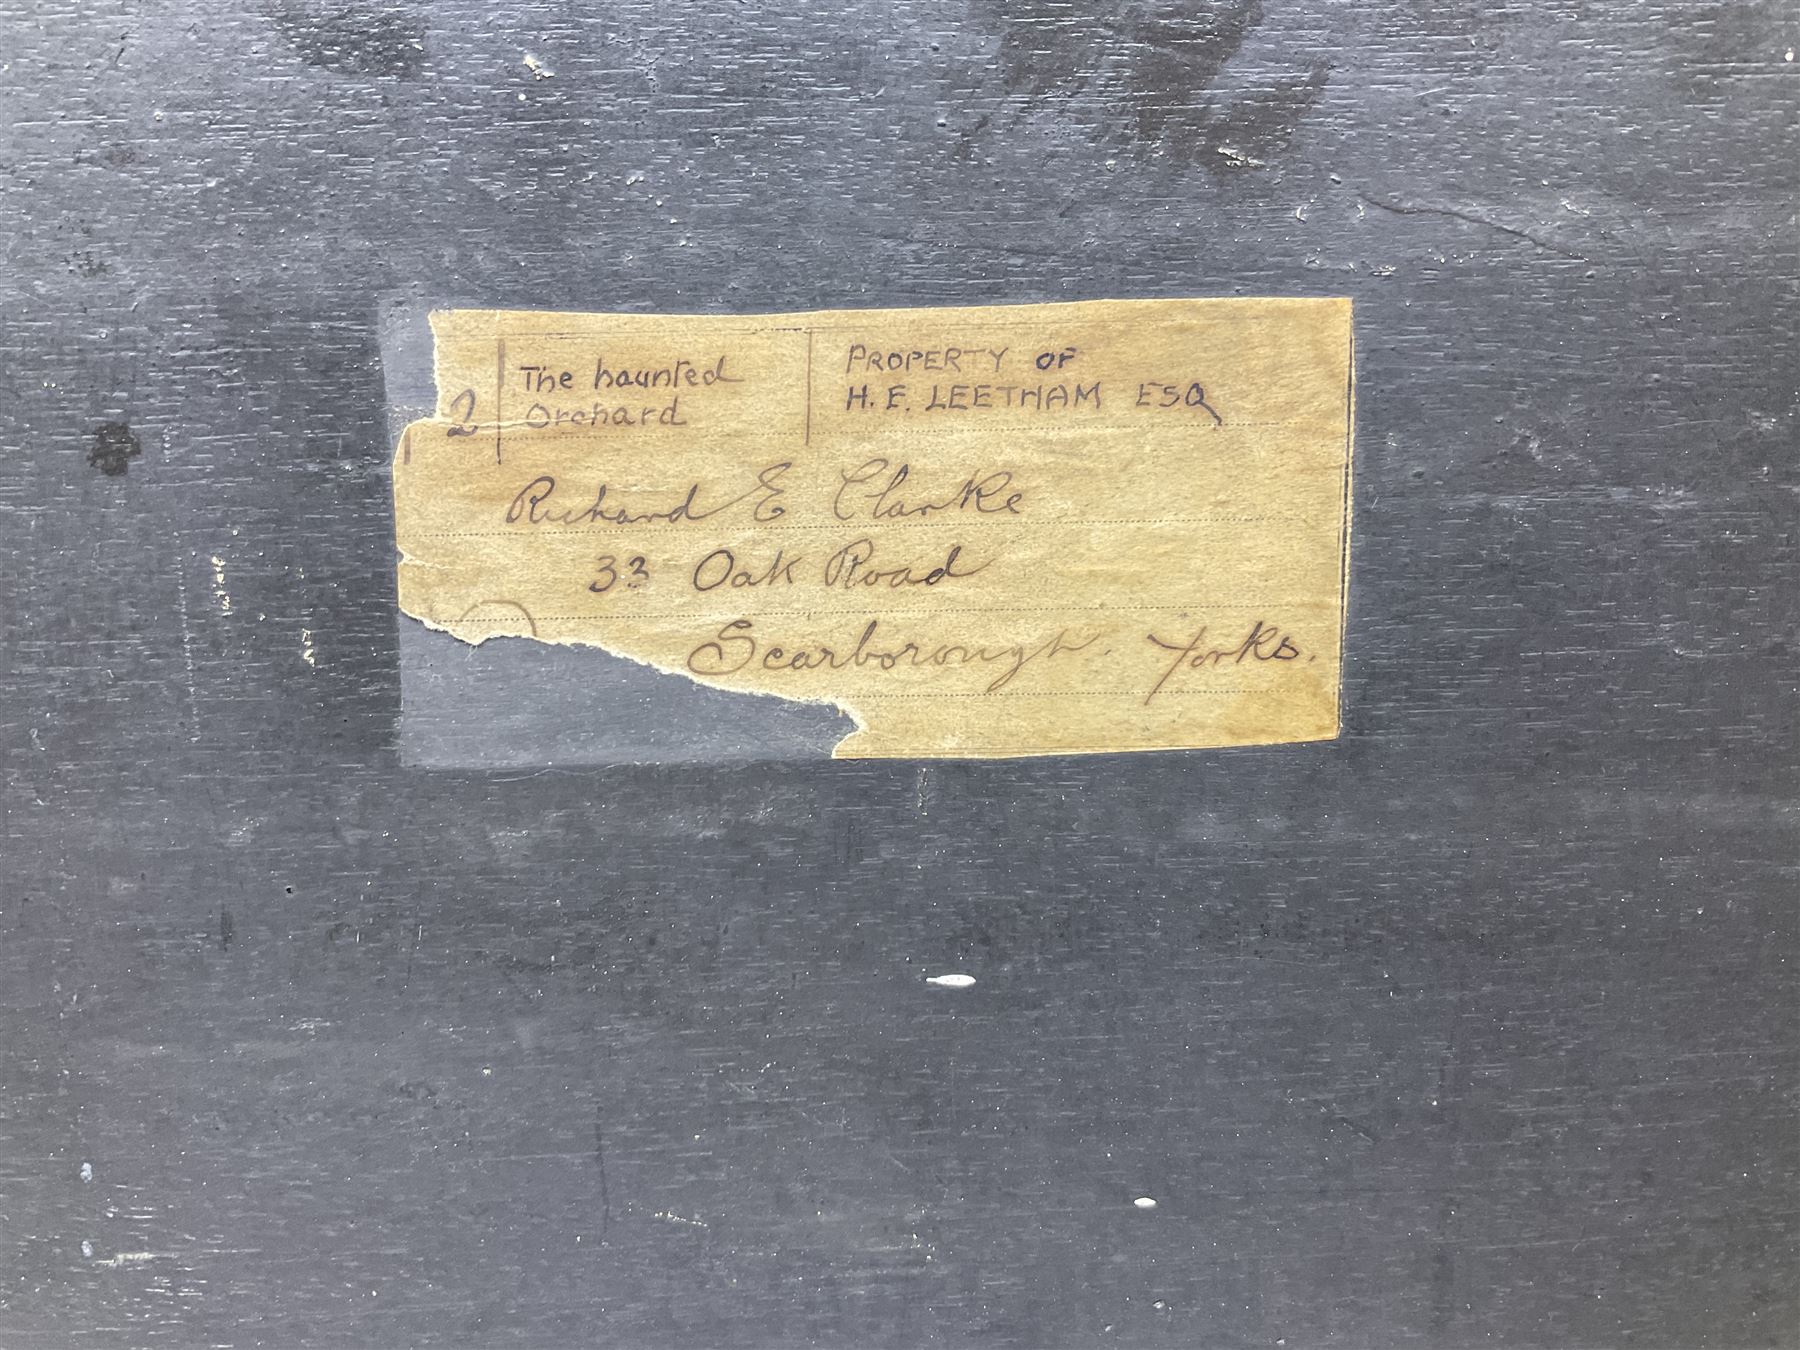 2 The haunted Orchard
PROPERTY OF
H. E. LEETHAM ESQ
Richard E Clarke
33 Oak Road
Scarborough. Yorks.